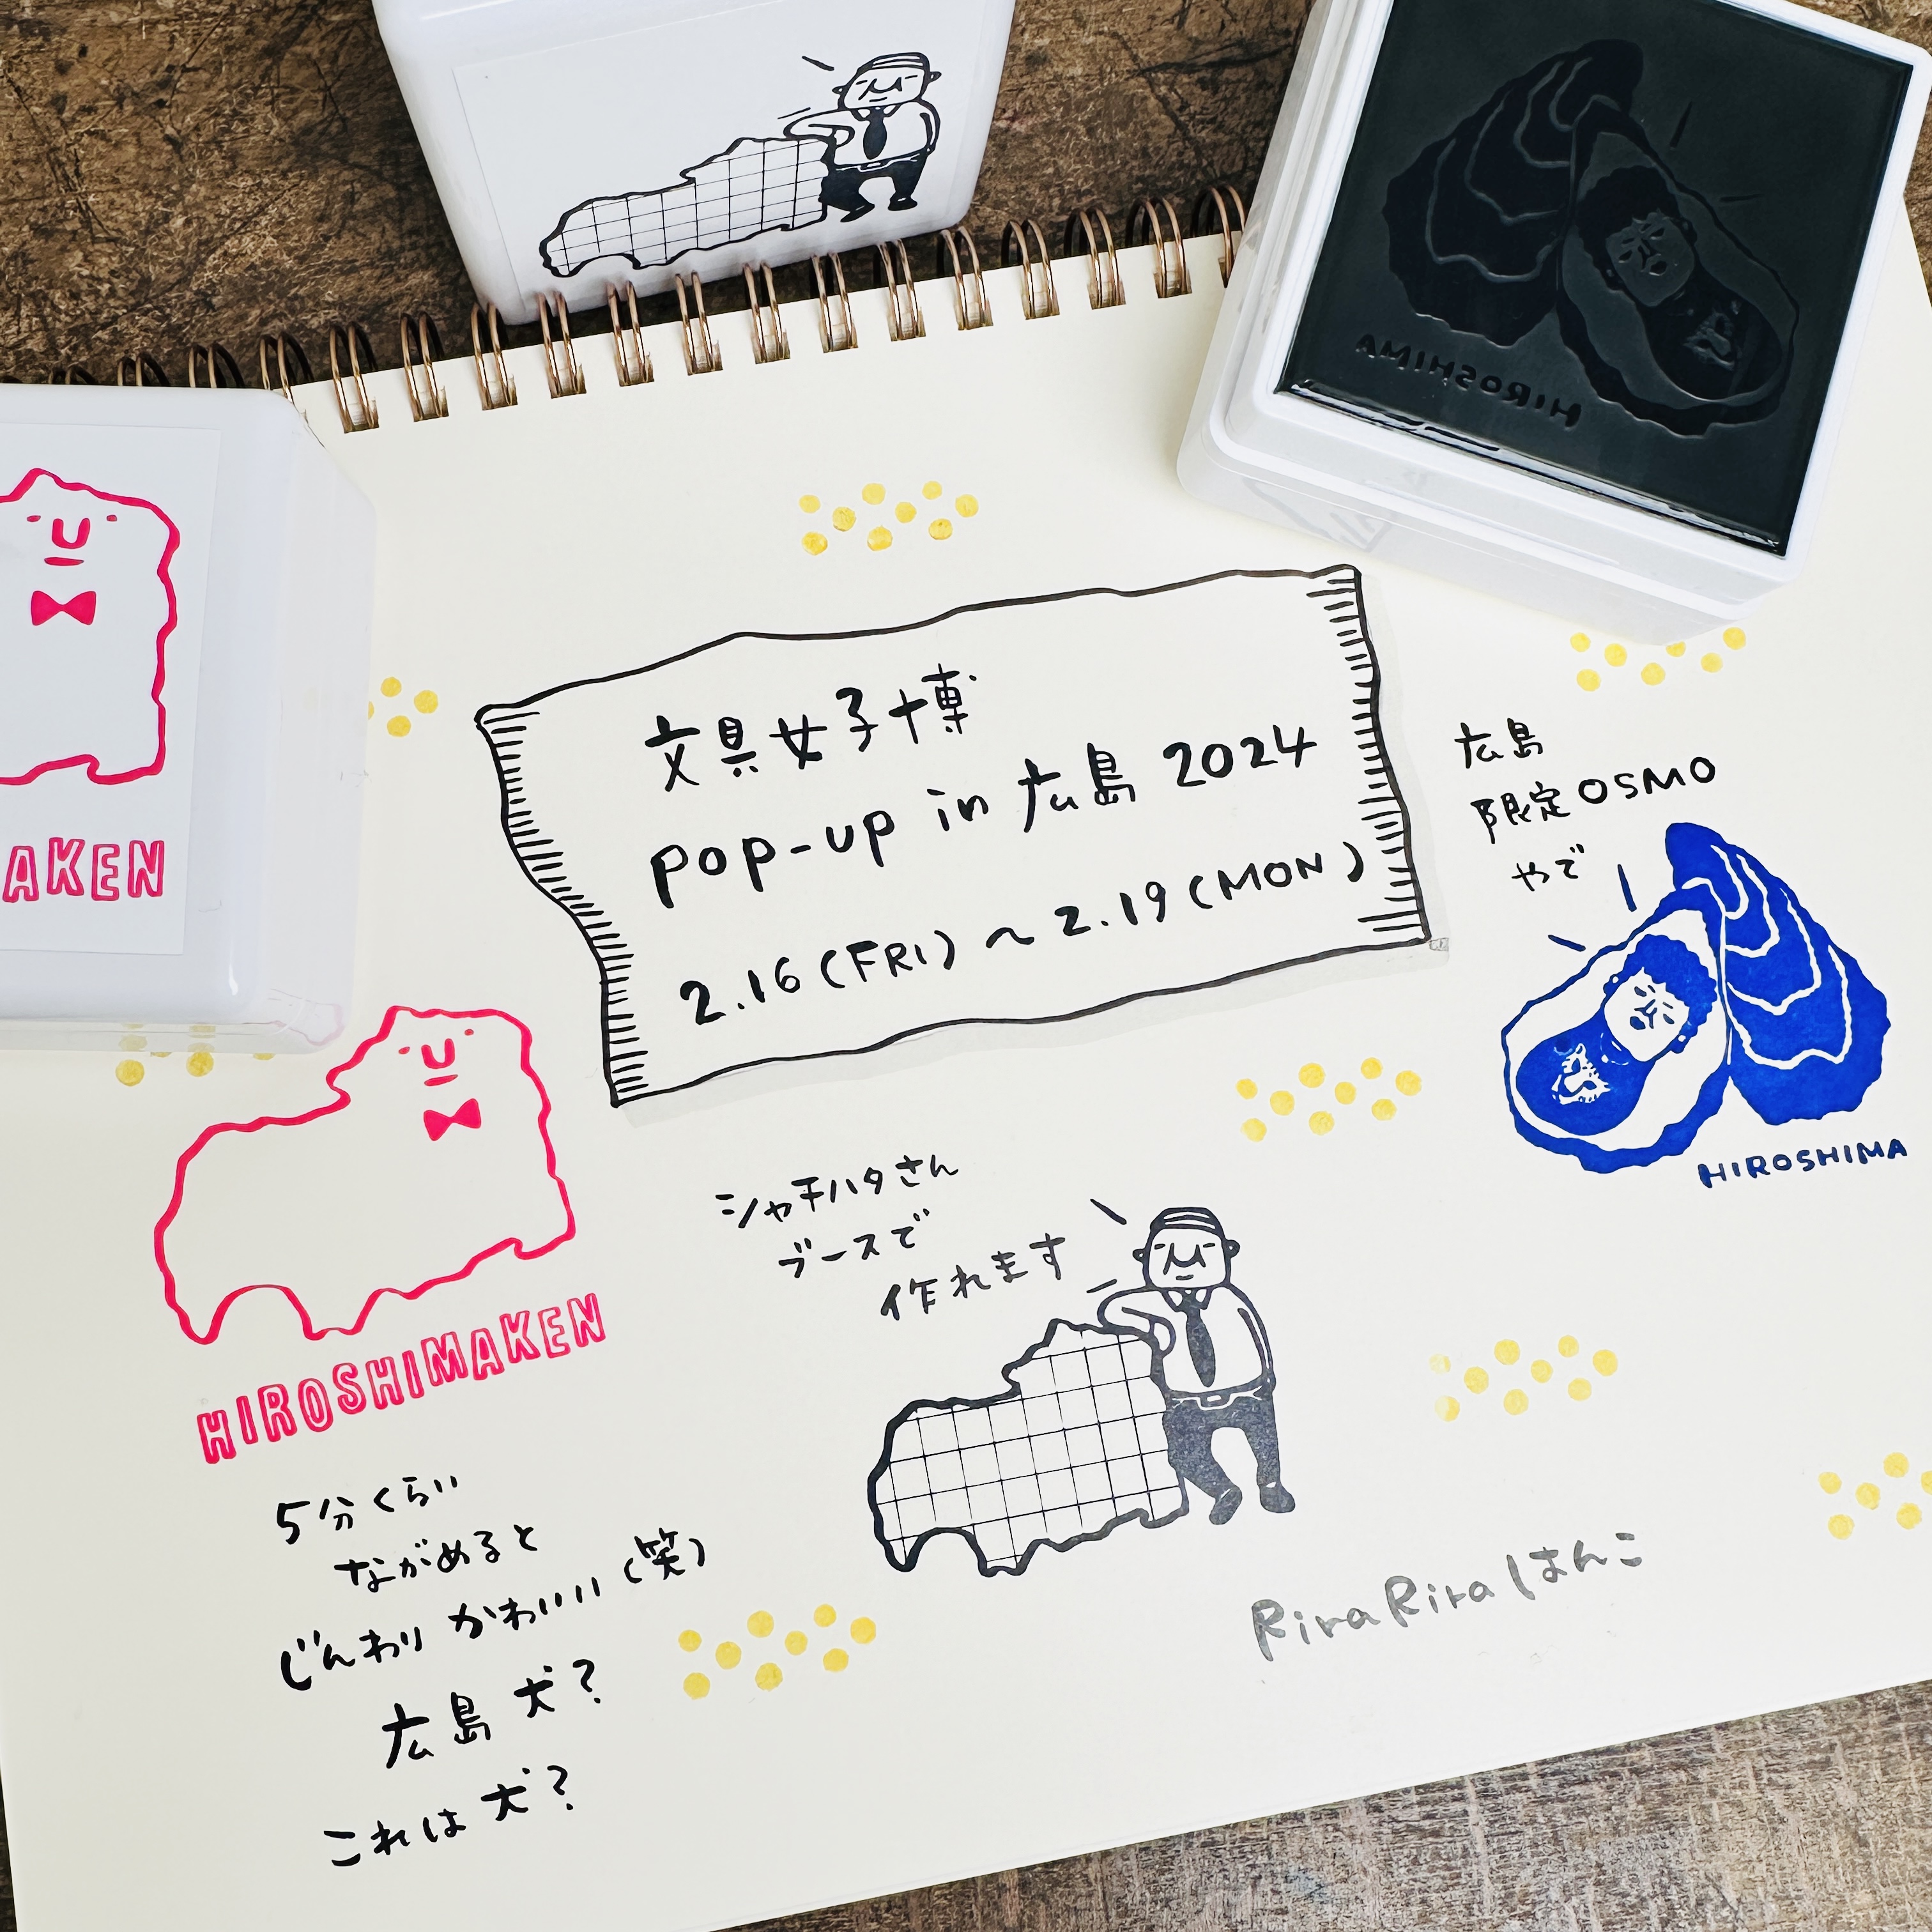 HIROSHIMA
AKEN
文具女子博
pop-up in 広島 2024
2.16(FRI)～2.19(MON)
広島
限定OSMO
やで
HIROSHIMA
シャチハタさん
ブースで
作れます
HIROSHIMAKEN
5分くらい
ながめると
じんわりかわいい(笑)
広島犬?
これは犬?
RiraRiraはんこ